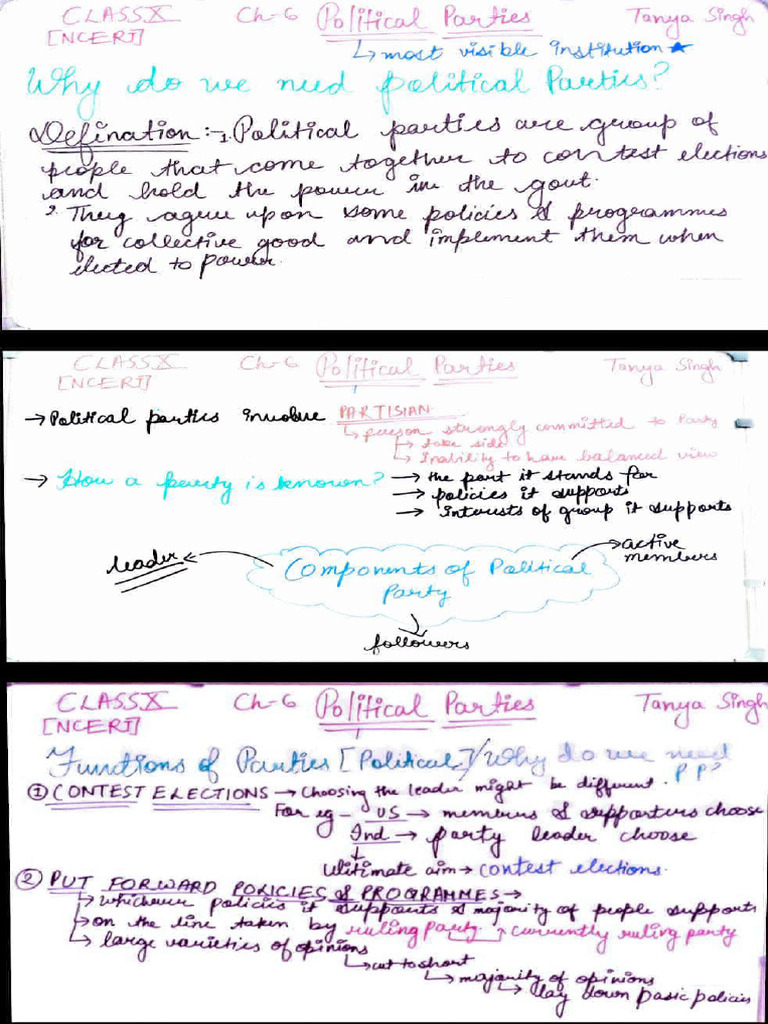 CLASS X Ch-6 Political Parties Tanya Singh
[NCERT] ↳ most visible institution ★
Why do we need political Parties?
Defination :- 1. Political parties are group of
people that come together to contest elections
and hold the power in the govt.
2. They agree upon some policies & programmes
for collective good and implement them when
elected to power.
CLASS X Ch-6 Political Parties Tanya Singh
[NCERT]
→ Political parties involve PARTISIAN
↳ person strongly committed to Party
↳ take side
↳ Inability to have balanced view
→ How a party is known? → the part it stands for
→ policies it supports
→ Interests of group it supports
leader Components of Political Party active members
followers
CLASS X Ch-6 Political Parties Tanya Singh
[NCERT]
Functions of Parties [Political] / Why do we need
P P?
① CONTEST ELECTIONS → Choosing the leader might be different.
For eg - US → members & supporters choose
Ind → party leader choose
↓
Ulitimate aim → contest elections.
② PUT FORWARD POLICIES & PROGRAMMES →
↳ whichever policies it supports & majority of people supports
↳ on the line taken by ruling Party. currently ruling party
↳ large varieties of opinions
↳ cut to short
↳ majority of opinions
↳ lay down basic policies